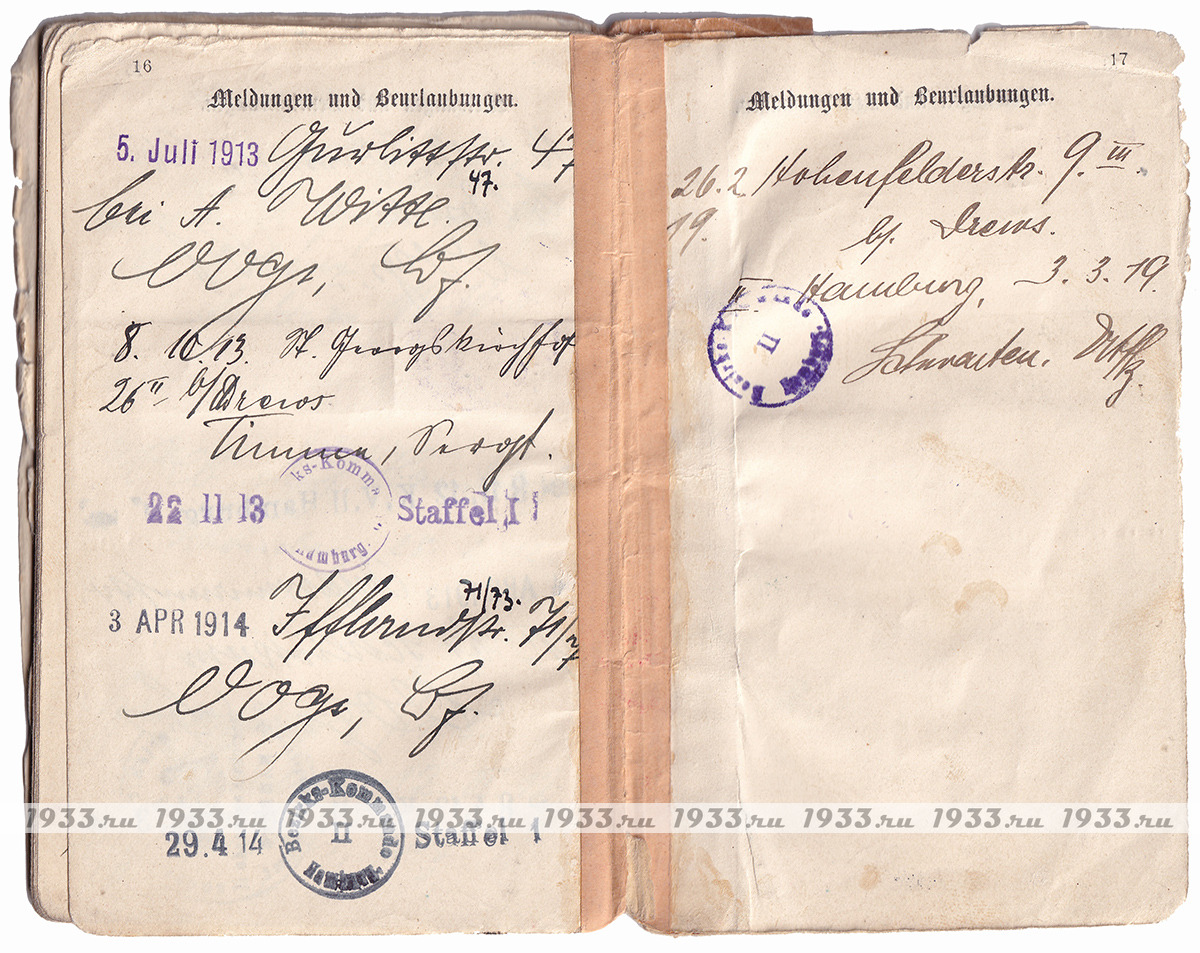 16
Meldungen und Beurlaubungen.
5. Juli 1913 Gurlittstr. 47
47.
bei A. Witte.
Vogt, Bf.
8. 10 13. St. Georgskirchhof
26 II b/ Drews.
Timme, Sergt.
22 11 13 ks-Komma Hamburg. Staffel I
71/73.
3 APR 1914 Ifflandstr. 71/7
Vogt, Bf.
29.4 14 Bezirks-Kommando II Hamburg. Staffel 1
17
Meldungen und Beurlaubungen.
26.2. Hohenfelderstr. 9. III.
19. b/. Drews.
II Hamburg, 3.3.19.
II
Schwarten.
1933.ru 1933.ru 1933.ru 1933.ru 1933.ru 1933.ru 1933.ru 1933.ru 1933.ru